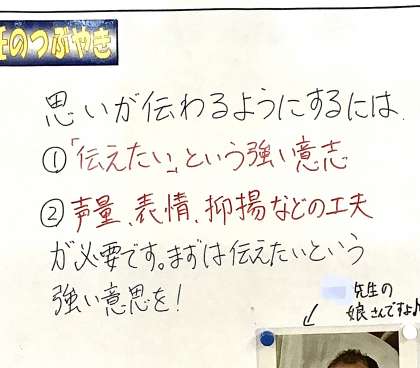 任のつぶやき
思いが伝わるようにするには
①「伝えたい」という強い意志
②声量、表情、抑揚などの工夫
が必要です。まずは伝えたいという
強い意思を!
先生の
娘さんですよ♪